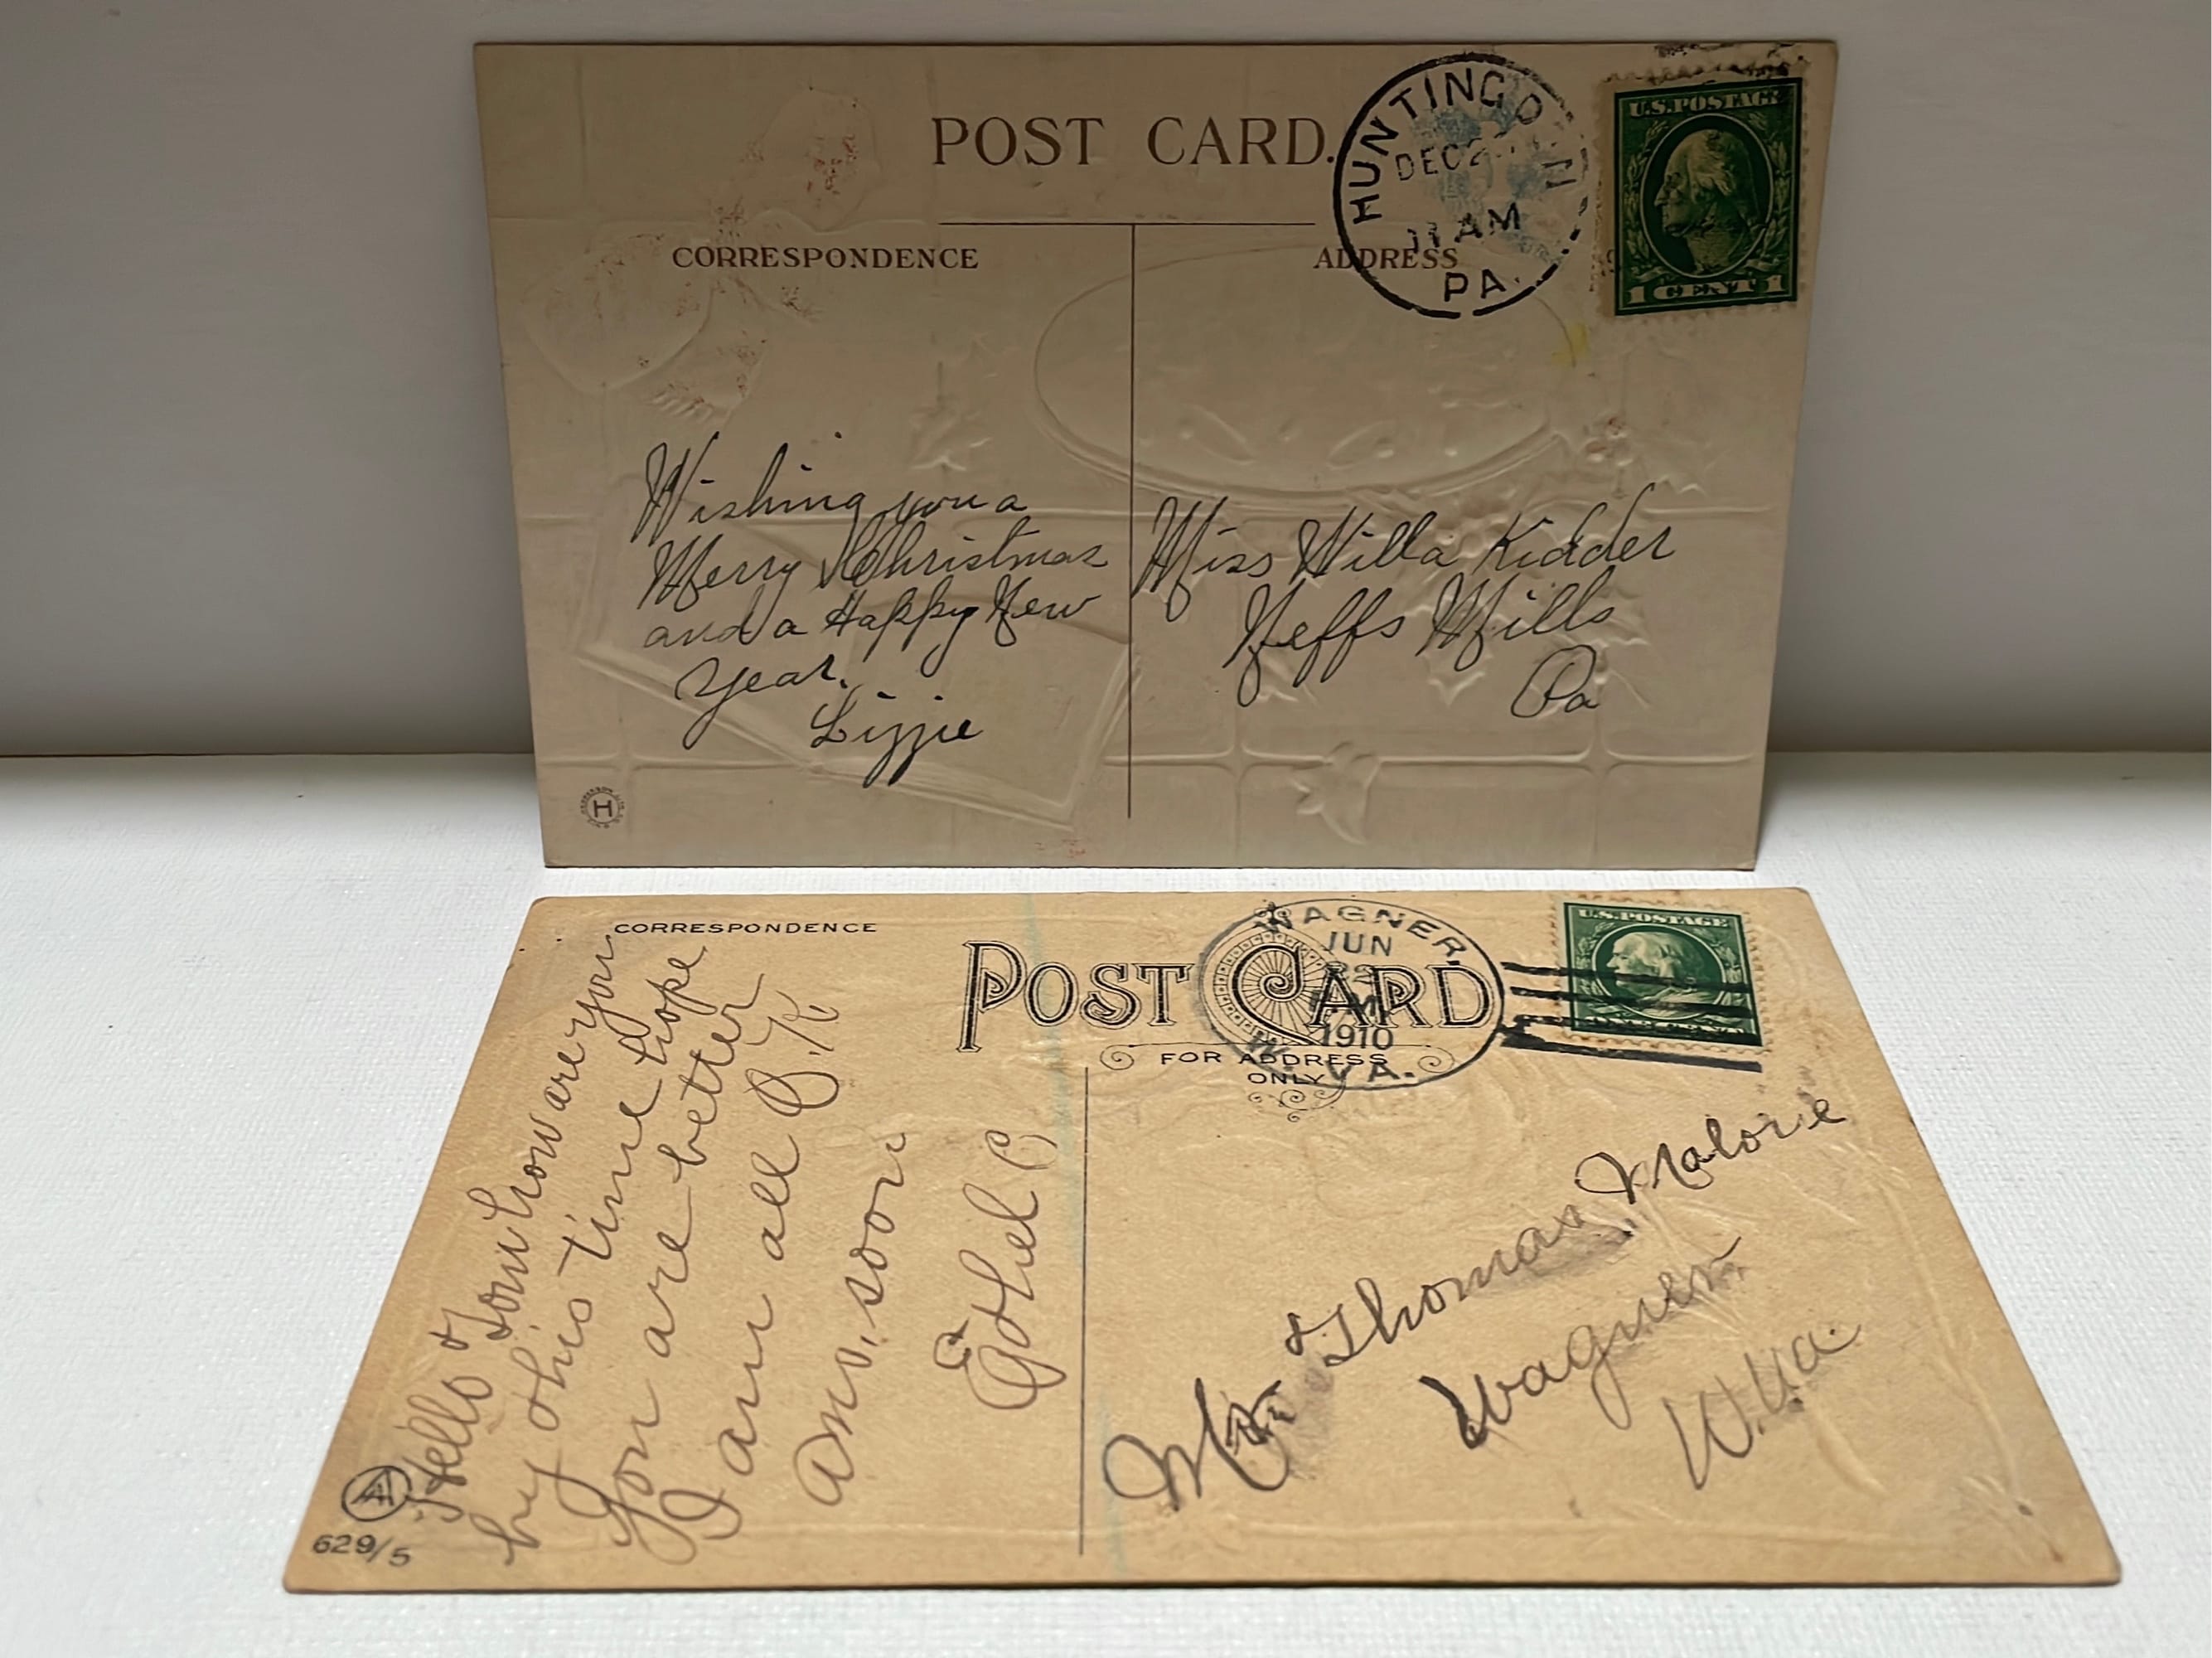 POST CARD.
HUNTINGDON
DEC 2
11 AM
PA.
U.S. POSTAGE
1 CENT 1
CORRESPONDENCE
ADDRESS
Wishing you a
Merry Christmas
and a Happy New
Year.
Lizzie
Miss Willa Kidder
Neffs Mills
Pa
H
CORRESPONDENCE
POST CARD
FOR ADDRESS
ONLY
WAGNER,
JUN
1910
W. VA.
U.S. POSTAGE
ONE CENT
Hello Tom how are you
by this time hope
you are better
I am all O.K
ans. soon
Ethel C
Mr Thomas Malone
Wagner
W.Va.
AA
629/5